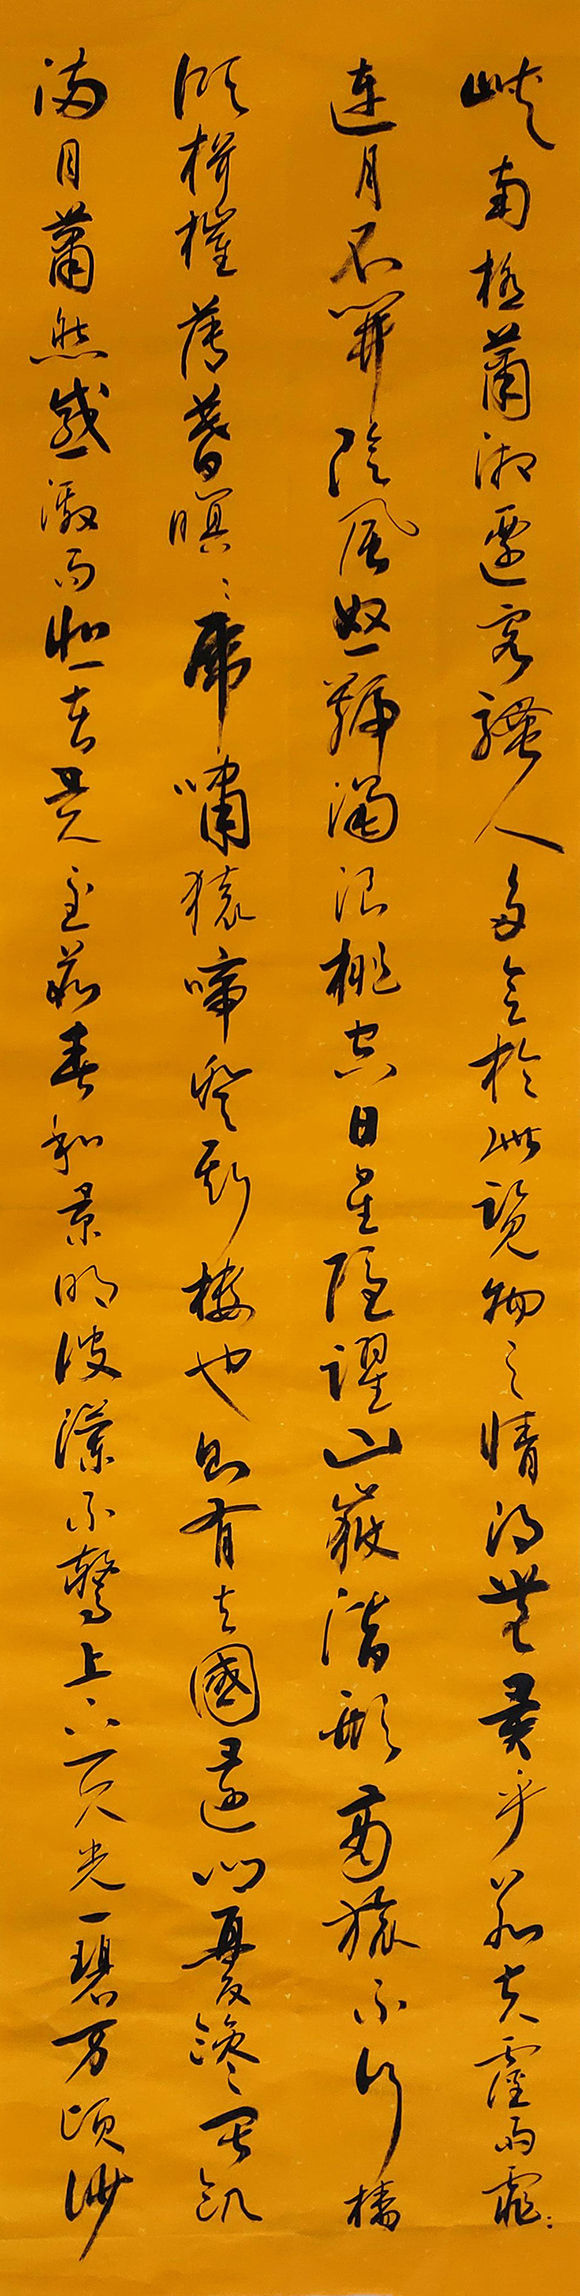 峽南極蕭湘遷客騷人多會於此覽物之情得無異乎若夫霪雨霏〻
連月不開陰風怒號濁浪排空日星隱曜山嶽潛形商旅不行檣
傾楫摧薄暮暝〻虎嘯猿啼登斯樓也則有去國鄉憂讒畏譏
滿目蕭然感激而悲者矣至若春和景明波瀾不驚上下天光一碧万頃沙